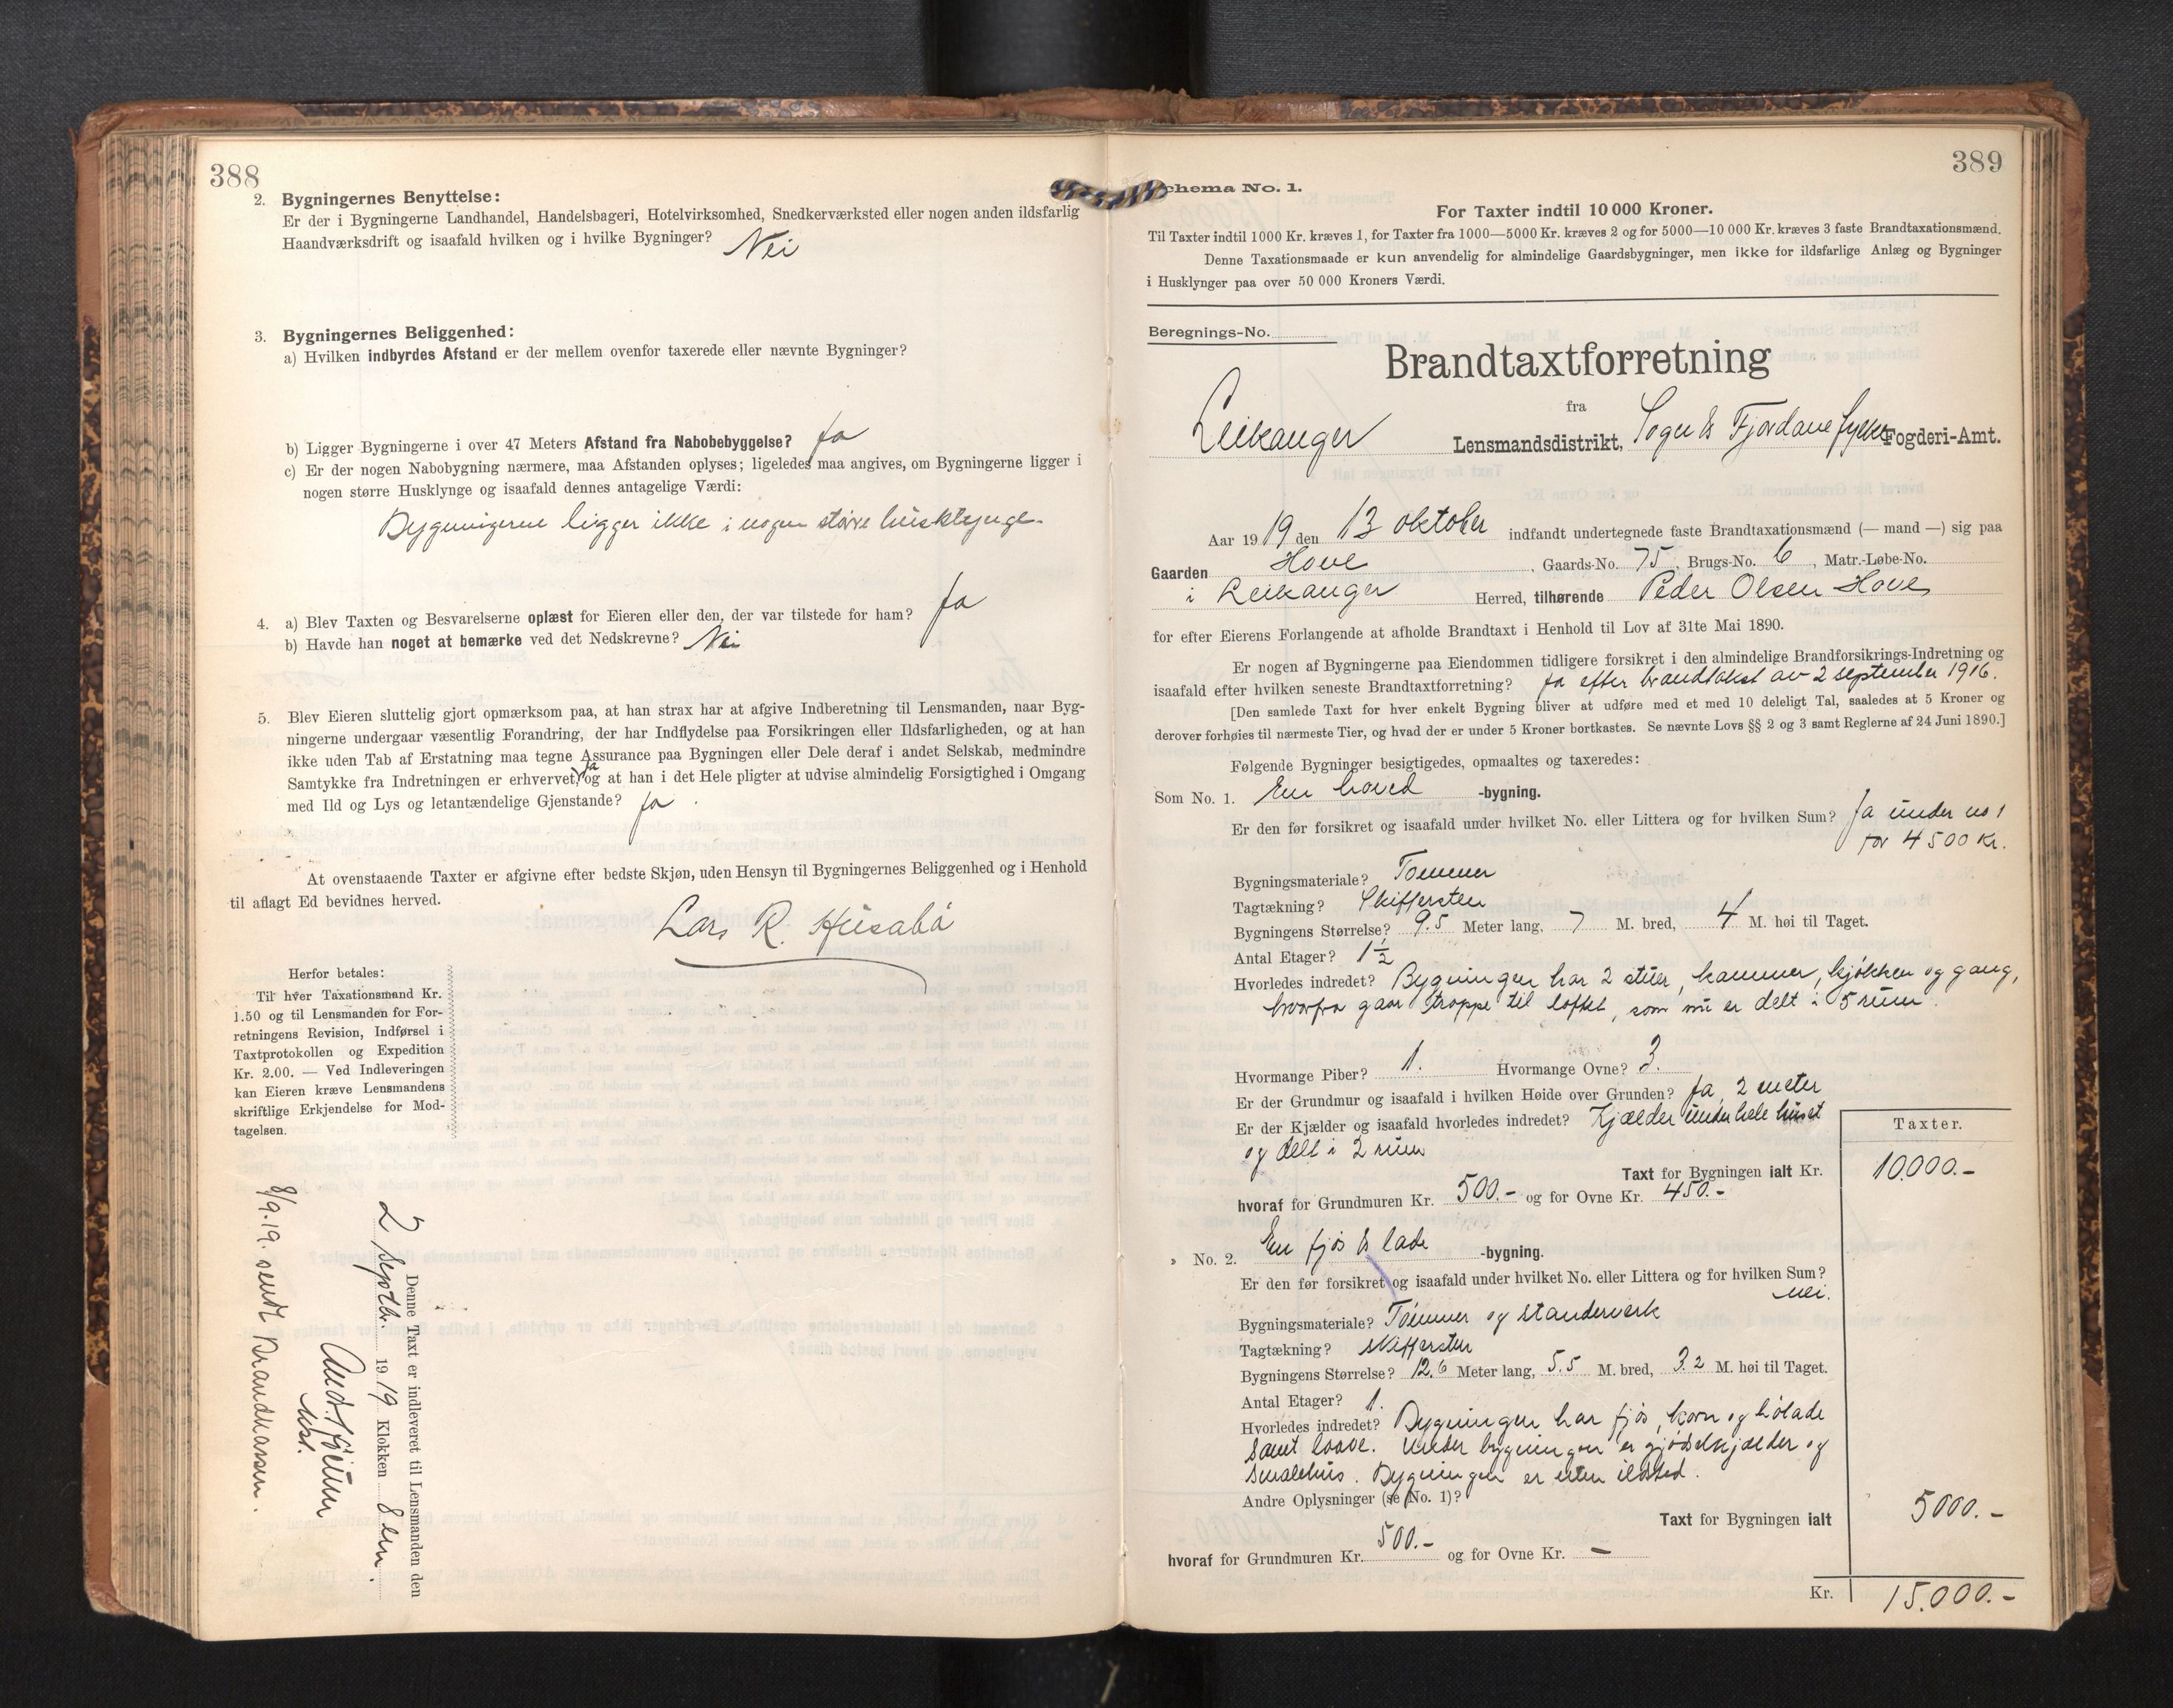 388
2. Bygningernes Benyttelse:
Er der i Bygningerne Landhandel, Handelsbageri, Hotelvirksomhed, Snedkerværksted eller nogen anden ildsfarlig
Haandværksdrift og isaafald hvilken og i hvilke Bygninger? Nei
3. Bygningernes Beliggenhed:
a) Hvilken indbyrdes Afstand er der mellem ovenfor taxerede eller nævnte Bygninger?
b) Ligger Bygningerne i over 47 Meters Afstand fra Nabobebyggelse? Ja
c) Er der nogen Nabobygning nærmere, maa Afstanden oplyses; ligeledes maa angives, om Bygningerne ligger i
nogen større Husklynge og isaafald dennes antagelige Værdi:
Bygningerne ligger ikke i nogen större husklynge.
4. a) Blev Taxten og Besvarelserne oplæst for Eieren eller den, der var tilstede for ham? Ja
b) Havde han noget at bemærke ved det Nedskrevne? Nei
5. Blev Eieren sluttelig gjort opmærksom paa, at han strax har at afgive Indberetning til Lensmanden, naar Byg-
ningerne undergaar væsentlig Forandring, der har Indflydelse paa Forsikringen eller Ildsfarligheden, og at han
ikke uden Tab af Erstatning maa tegne Assurance paa Bygningen eller Dele deraf i andet Selskab, medmindre
Samtykke fra Indretningen er erhvervet, Ja og at han i det Hele pligter at udvise almindelig Forsigtighed i Omgang
med Ild og Lys og letantændelige Gjenstande? Ja
At ovenstaaende Taxter er afgivne efter bedste Skjøn, uden Hensyn til Bygningernes Beliggenhed og i Henhold
til aflagt Ed bevidnes herved.
Lars R. Husabö
Herfor betales:
Til hver Taxationsmand Kr.
1.50 og til Lensmanden for For-
retningens Revision, Indførsel i
Taxtprotokollen og Expedition
Kr. 2.00. — Ved Indleveringen
kan Eieren kræve Lensmandens
skriftlige Erkjendelse for Mod-
tagelsen.
Denne Taxt er indleveret til Lensmanden den
2 septbr. 1919 Klokken 8 em.
8/9.19. sendt Brandkassen.
389
chema No. 1.
For Taxter indtil 10 000 Kroner.
Til Taxter indtil 1000 Kr. kræves 1, for Taxter fra 1000—5000 Kr. kræves 2 og for 5000—10 000 Kr. kræves 3 faste Brandtaxationsmænd.
Denne Taxationsmaade er kun anvendelig for almindelige Gaardsbygninger, men ikke for ildsfarlige Anlæg og Bygninger
i Husklynger paa over 50 000 Kroners Værdi.
Beregnings-No.
Brandtaxtforretning
fra
Leikanger Lensmandsdistrikt, Sogn & Fjordane fylke Fogderi-Amt.
Aar 1919 den 13 oktober indfandt undertegnede faste Brandtaxationsmænd (— mand —) sig paa
Gaarden Hove, Gaards-No. 75, Brugs-No. 6, Matr.-Løbe-No.
i Leikanger Herred, tilhørende Peder Olsen Hove
for efter Eierens Forlangende at afholde Brandtaxt i Henhold til Lov af 31te Mai 1890.
Er nogen af Bygningerne paa Eiendommen tidligere forsikret i den almindelige Brandforsikrings-Indretning og
isaafald efter hvilken seneste Brandtaxtforretning? Ja efter brandtakst av 2 september 1916.
[Den samlede Taxt for hver enkelt Bygning bliver at udføre med et med 10 deleligt Tal, saaledes at 5 Kroner og
derover forhøies til nærmeste Tier, og hvad der er under 5 Kroner bortkastes. Se nævnte Lovs §§ 2 og 3 samt Reglerne af 24 Juni 1890.]
Følgende Bygninger besigtigedes, opmaaltes og taxeredes:
Som No. 1. En hoved -bygning.
Er den før forsikret og isaafald under hvilket No. eller Littera og for hvilken Sum? Ja under no 1
for 4500 Kr.
Bygningsmateriale? Tömmer
Tagtækning? Skiffersten
Bygningens Størrelse? 9.5 Meter lang, 7 M. bred, 4 M. høi til Taget.
Antal Etager? 1½
Hvorledes indredet? Bygningen har 2 stuer, kammer, kjökken og gang,
hvorfra gaar trappe til loftet, som nu er delt i 5 rum
Hvormange Piber? 1. Hvormange Ovne? 3.
Er der Grundmur og isaafald i hvilken Høide over Grunden? Ja, 2 meter
Er der Kjælder og isaafald hvorledes indredet? Kjælder under hele huset
og delt i 2 rum
Taxter.
Taxt for Bygningen ialt Kr. 10.000.-
hvoraf for Grundmuren Kr. 500.- og for Ovne Kr. 450.-
» No. 2. En fjös & lade -bygning.
Er den før forsikret og isaafald under hvilket No. eller Littera og for hvilken Sum?
nei.
Bygningsmateriale? Tömmer og standerverk
Tagtækning? Skiffersten
Bygningens Størrelse? 12.6 Meter lang, 5.5 M. bred, 3.2 M. høi til Taget.
Antal Etager? 1.
Hvorledes indredet? Bygningen har fjös, korn og hölade
samt laave. Under bygningen er gjödselkjælder og
smalehus. Bygningen er uten ildsted.
Andre Oplysninger (se No. 1)?
Taxt for Bygningen ialt 5000.-
hvoraf for Grundmuren Kr. 500.- og for Ovne Kr. -
Kr. 15.000.-